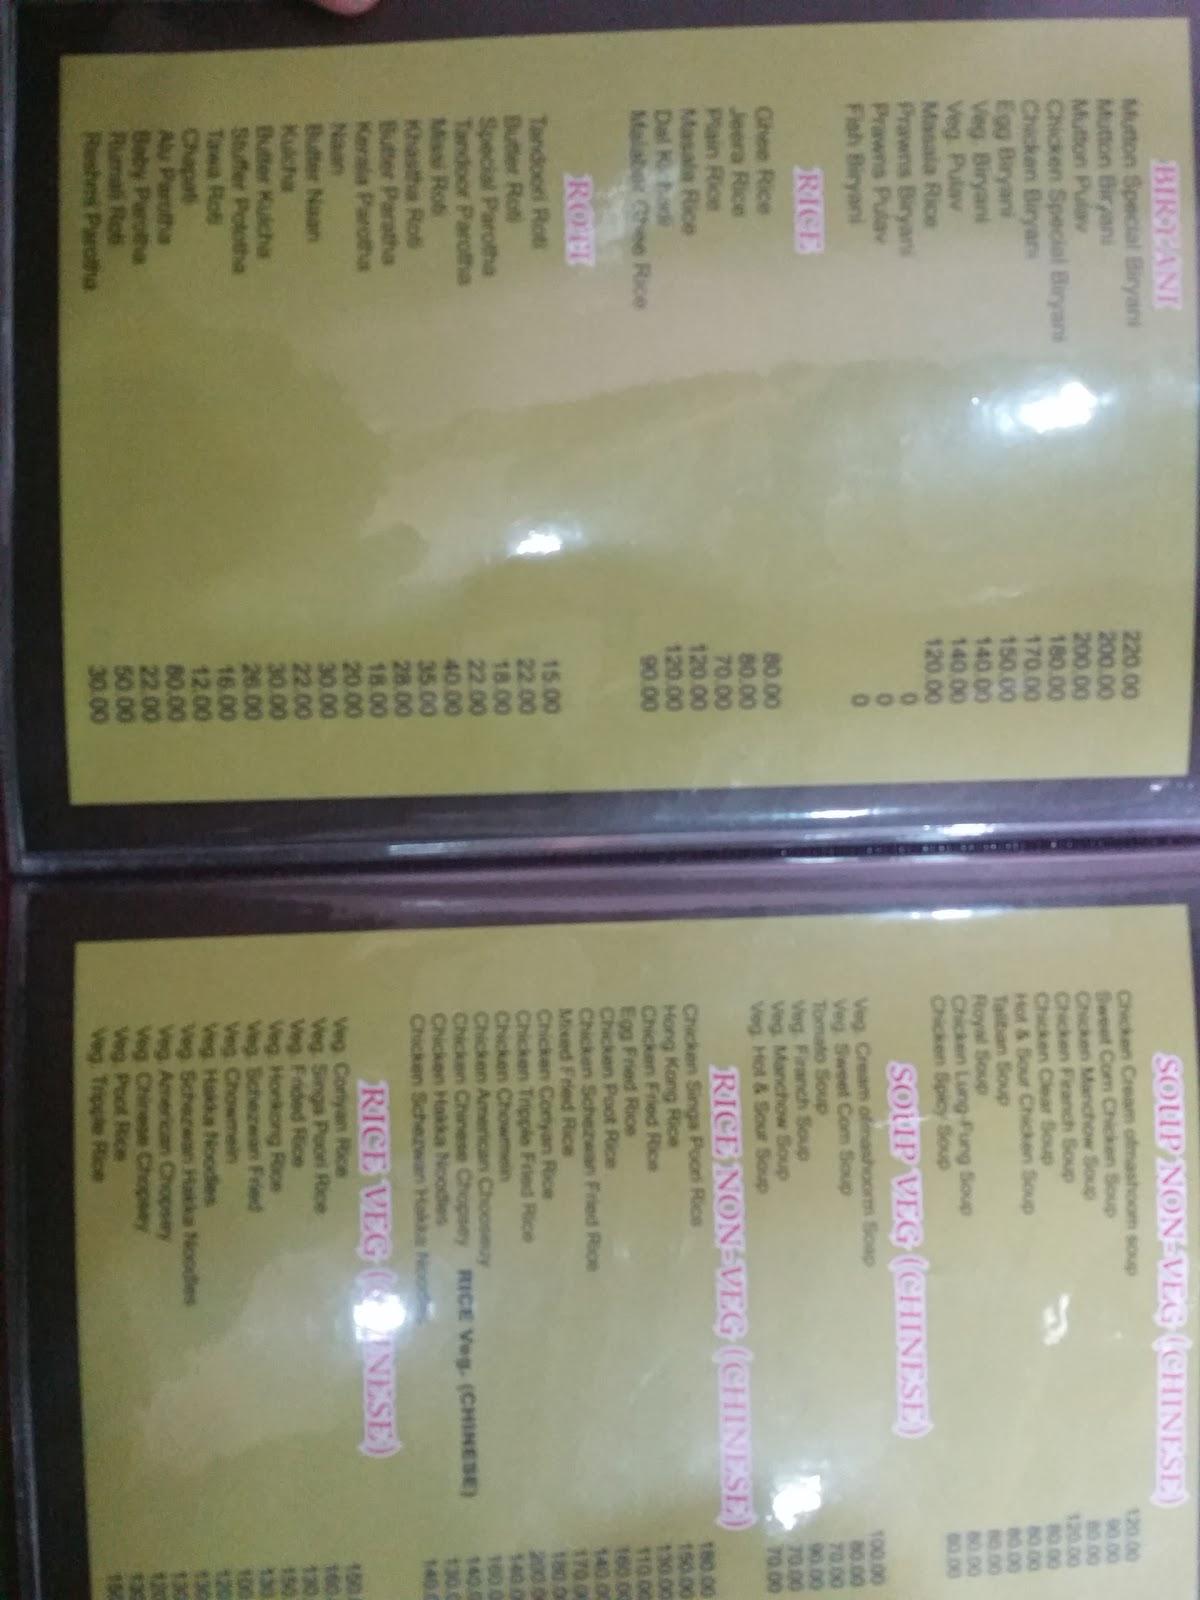 BIRYANI
Mutton Special Biryani 220.00
Mutton Biryani 200.00
Mutton Pulav 200.00
Chicken Special Biryani 180.00
Chicken Biryani 170.00
Egg Biryani 150.00
Veg. Biryani 140.00
Veg. Pulav 140.00
Masala Rice 120.00
Prawns Biryani 0
Prawns Pulav 0
Fish Biryani 0
RICE
Ghee Rice 80.00
Jeera Rice 80.00
Plain Rice 70.00
Masala Rice 120.00
Dal 120.00
Malabar Ghee Rice 90.00
ROTI
Tandoori Roti 15.00
Butter Roti 22.00
Special Parotha 18.00
Tandoor Parotha 22.00
Missi Roti 40.00
Khastha Roti 35.00
Butter Parotha 28.00
Kerala Parotha 18.00
Naan 20.00
Butter Naan 30.00
Kulcha 22.00
Butter Kulcha 30.00
Stuffer Polotha 26.00
Tawa Roti 16.00
Chapati 12.00
Alu Parotha
Baby Parotha 22.00
Rumali Roti 50.00
Reshmi Parotha 30.00
SOUP NON-VEG (CHINESE)
Chicken Cream ofmashoom soup 120.00
Sweet Corn Chicken Soup 90.00
Chicken Manchow Soup 80.00
Chicken Finach Soup 120.00
Chicken Clear Soup 80.00
Hot & Sour Chicken Soup 80.00
Soup 80.00
Royal Soup 80.00
Chicken Lung-Fung Soup 80.00
Chicken Spicy Soup
SOUP VEG (CHINESE)
Veg. Cream ofmashoorm Soap 100.00
Veg. Sweet Corn Soup 80.00
Tomato Soup 70.00
Veg. Finach Soup 90.00
Veg. Manchow Soup 70.00
Veg. Hot & Sour Soup 70.00
RICE NON-VEG (CHINESE)
Chicken Singa Poori Rice 180.00
Hong Kong Rice 150.00
Chicken Fried Rice 130.00
Egg Fried Rice 110.00
Chicken Poot Rice 160.00
Chicken Schezwan Fried Rice 140.00
Mixed Fried Rice 170.00
Chicken Conyan Rice 180.00
Chicken Tripple Fried Rice 200.00
Chicken Chowmein 140.00
Chicken Choosevy 160.00
Chicken Chinese Chopsey 140.00
Chicken Hakka Noodles 130.0
Chicken Schezwan Hakka Noodles 140.0
RICE Veg. (CHINESE)
RICE VEG (CHINESE)
Veg. Conyan Rice 150.
Veg. Singa Poori Rice 160.
Veg. Fried Rice
Veg. Hong Rice
Veg. Schezwan Fried
Veg. Chowmein
Veg. Hakka Noodles
Veg. Schezwan Hakka Noodles
Veg. American Chopsey
Veg. Chinese Chopsey
Veg. Poot Rice
Veg. Tripple Rice